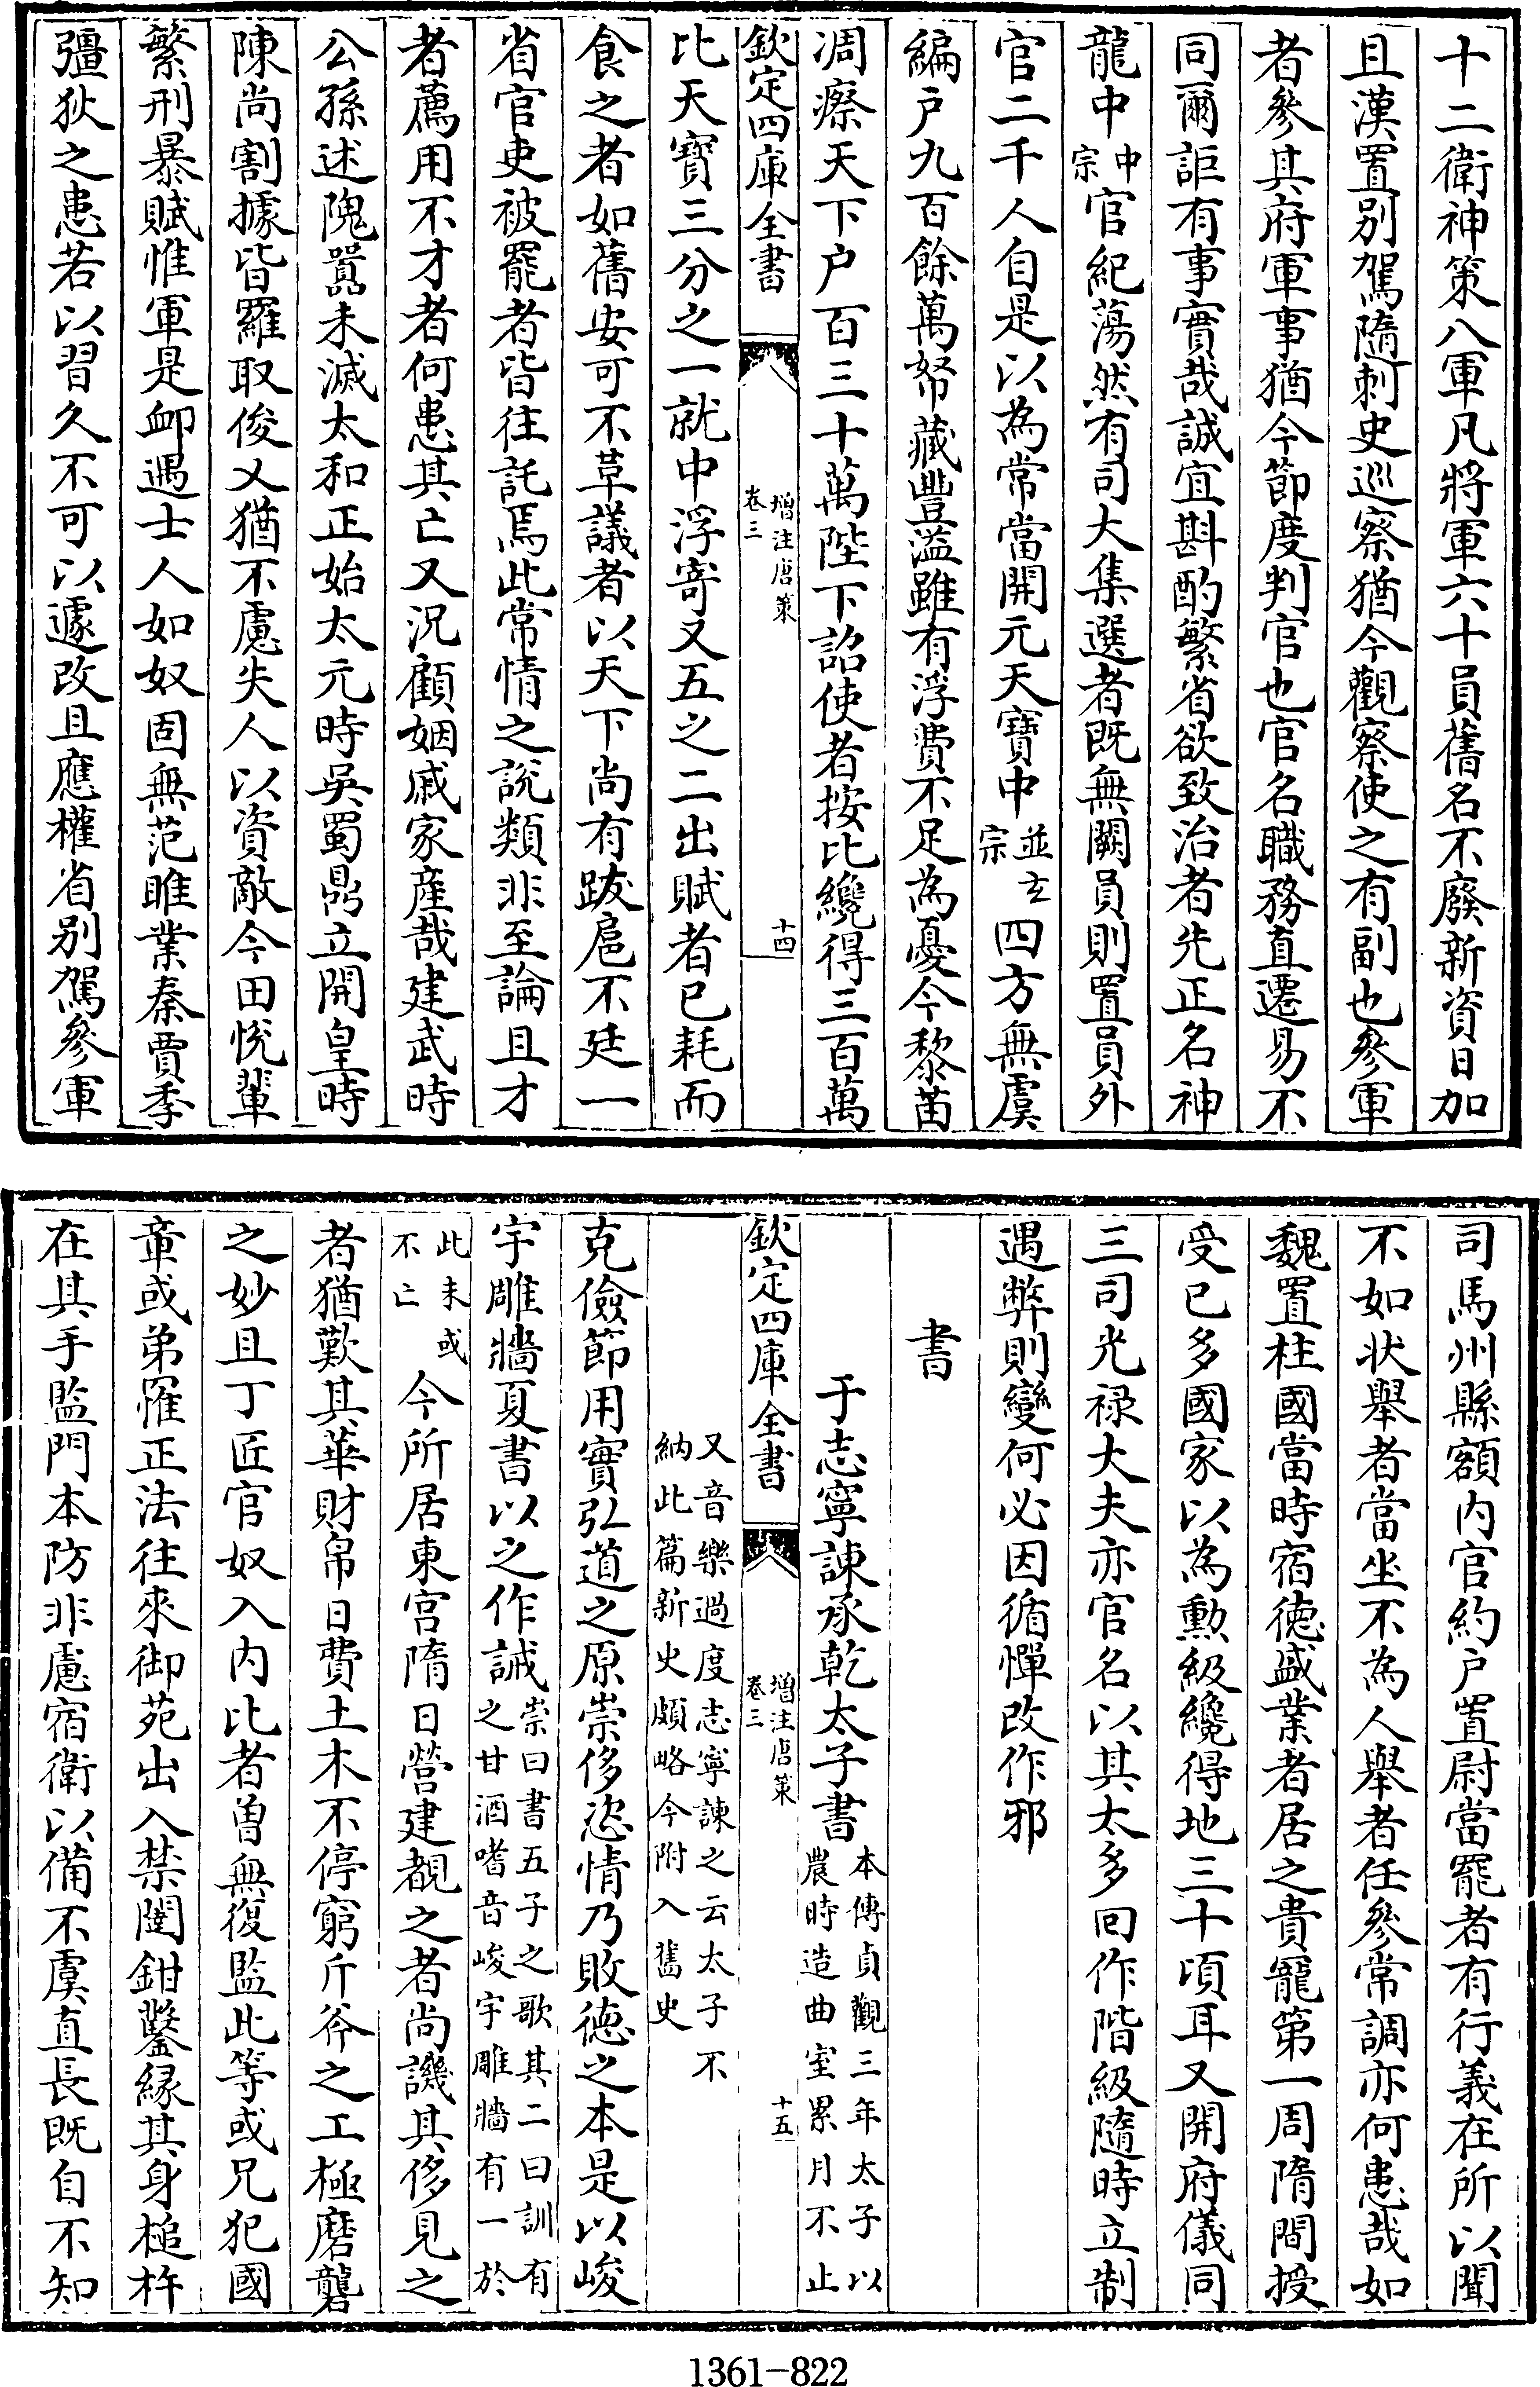 十二衛神策八軍凡將軍六十員舊名不廢新資日加
且漢置別駕隨刺史巡察猶今觀察使之有副也參軍
者參其府軍事猶今節度判官也官名職務直遷易不
同爾詎有事實哉誠宜斟酌繁省欲致治者先正名神
龍中中宗官紀蕩然有司大集選者既無闕員則置員外
官二千人自是以為常當開元天寶中並玄宗四方無虞
編戶九百餘萬帑藏豐溢雖有浮費不足為憂今黎苗
凋瘵天下戶百三十萬陛下詔使者按比纔得三百萬
欽定四庫全書 增注唐策 卷三 十四
比天寶三分之一就中浮寄又五之二出賦者已耗而
食之者如舊安可不革議者以天下尚有跋扈不廷一
省官吏被罷者皆往託焉此常情之說類非至論且才
者薦用不才者何患其亡又況顧姻戚家産哉建武時
公孫述隗囂未滅太和正始太元時吳蜀鼎立開皇時
陳尚割據皆羅取俊乂猶不慮失人以資敵今田悅輩
繁刑暴賦惟軍是卹遇士人如奴固無范雎業秦賈季
彊狄之患若以習久不可以遽改且應權省別駕參軍
司馬州縣額內官約戶置尉當罷者有行義在所以聞
不如狀舉者當坐不為人舉者任參常調亦何患哉如
魏置柱國當時宿徳盛業者居之貴寵第一周隋間授
受已多國家以為勳級纔得地三十頃耳又開府儀同
三司光禄大夫亦官名以其太多回作階級隨時立制
遇弊則變何必因循憚改作邪
書
于志寧諫承乾太子書本傳貞觀三年太子以農時造曲室累月不止
欽定四庫全書 增注唐策 卷三 十五
又音樂過度志寧諫之云太子不納此篇新史頗略今附入舊史
克儉節用實弘道之原崇侈恣情乃敗徳之本是以峻
宇雕牆夏書以之作誡崇曰書五子之歌其二曰訓有之甘酒嗜音峻宇雕牆有一於
此未或不亡今所居東宮隋日營建覩之者尚譏其侈見之
者猶歎其華財帛日費土木不停窮斤斧之工極磨礱
之妙且丁匠官奴入內比者曽無復監此等或兄犯國
章或弟罹正法往來御苑出入禁闥鉗鑿縁其身槌杵
在其手監門本防非慮宿衛以備不虞直長既自不知
1361-822